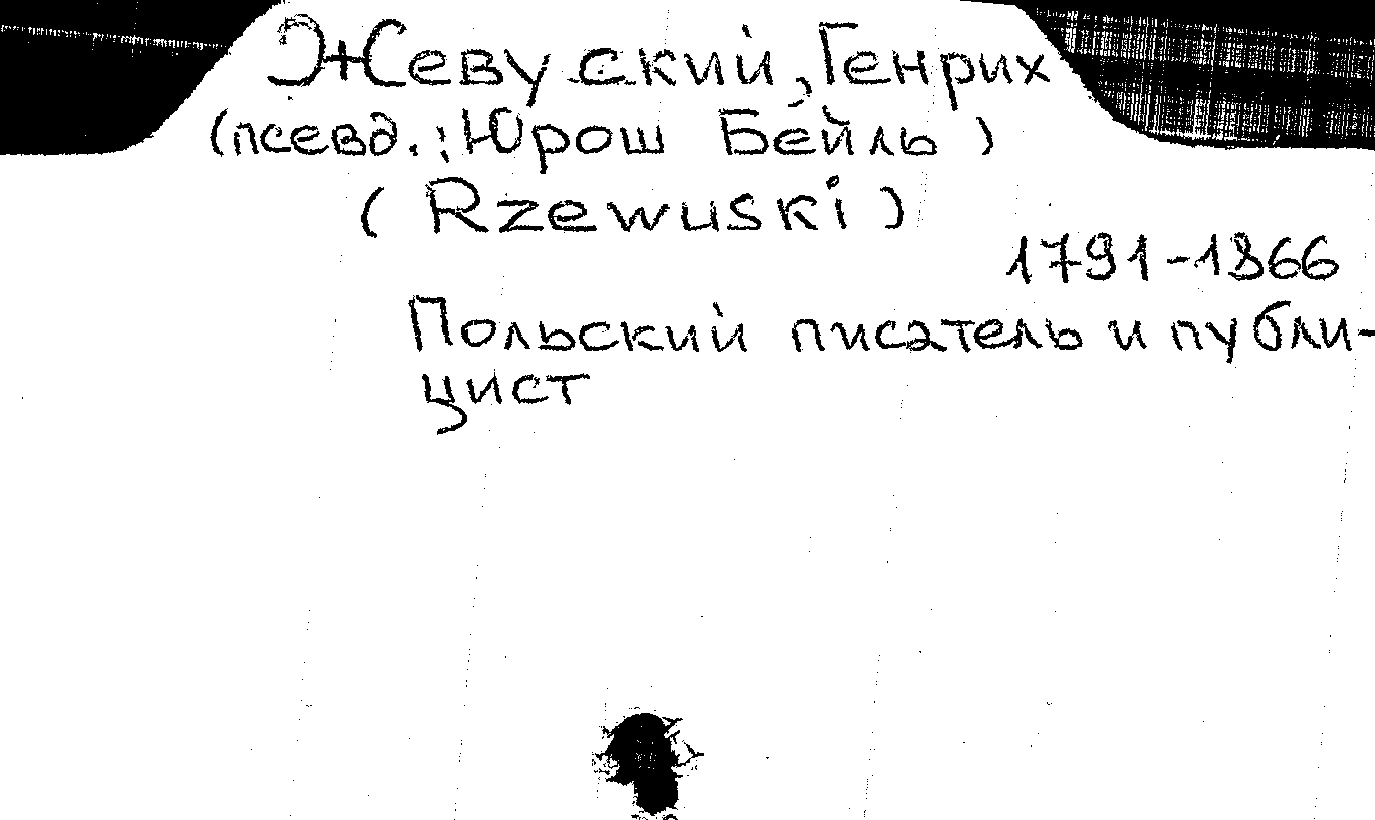 Жевуский, Генрих
(псевд.: Юрош Бейль)
(Rzewuski)
1791-1866
Польский писатель и публи-
цист